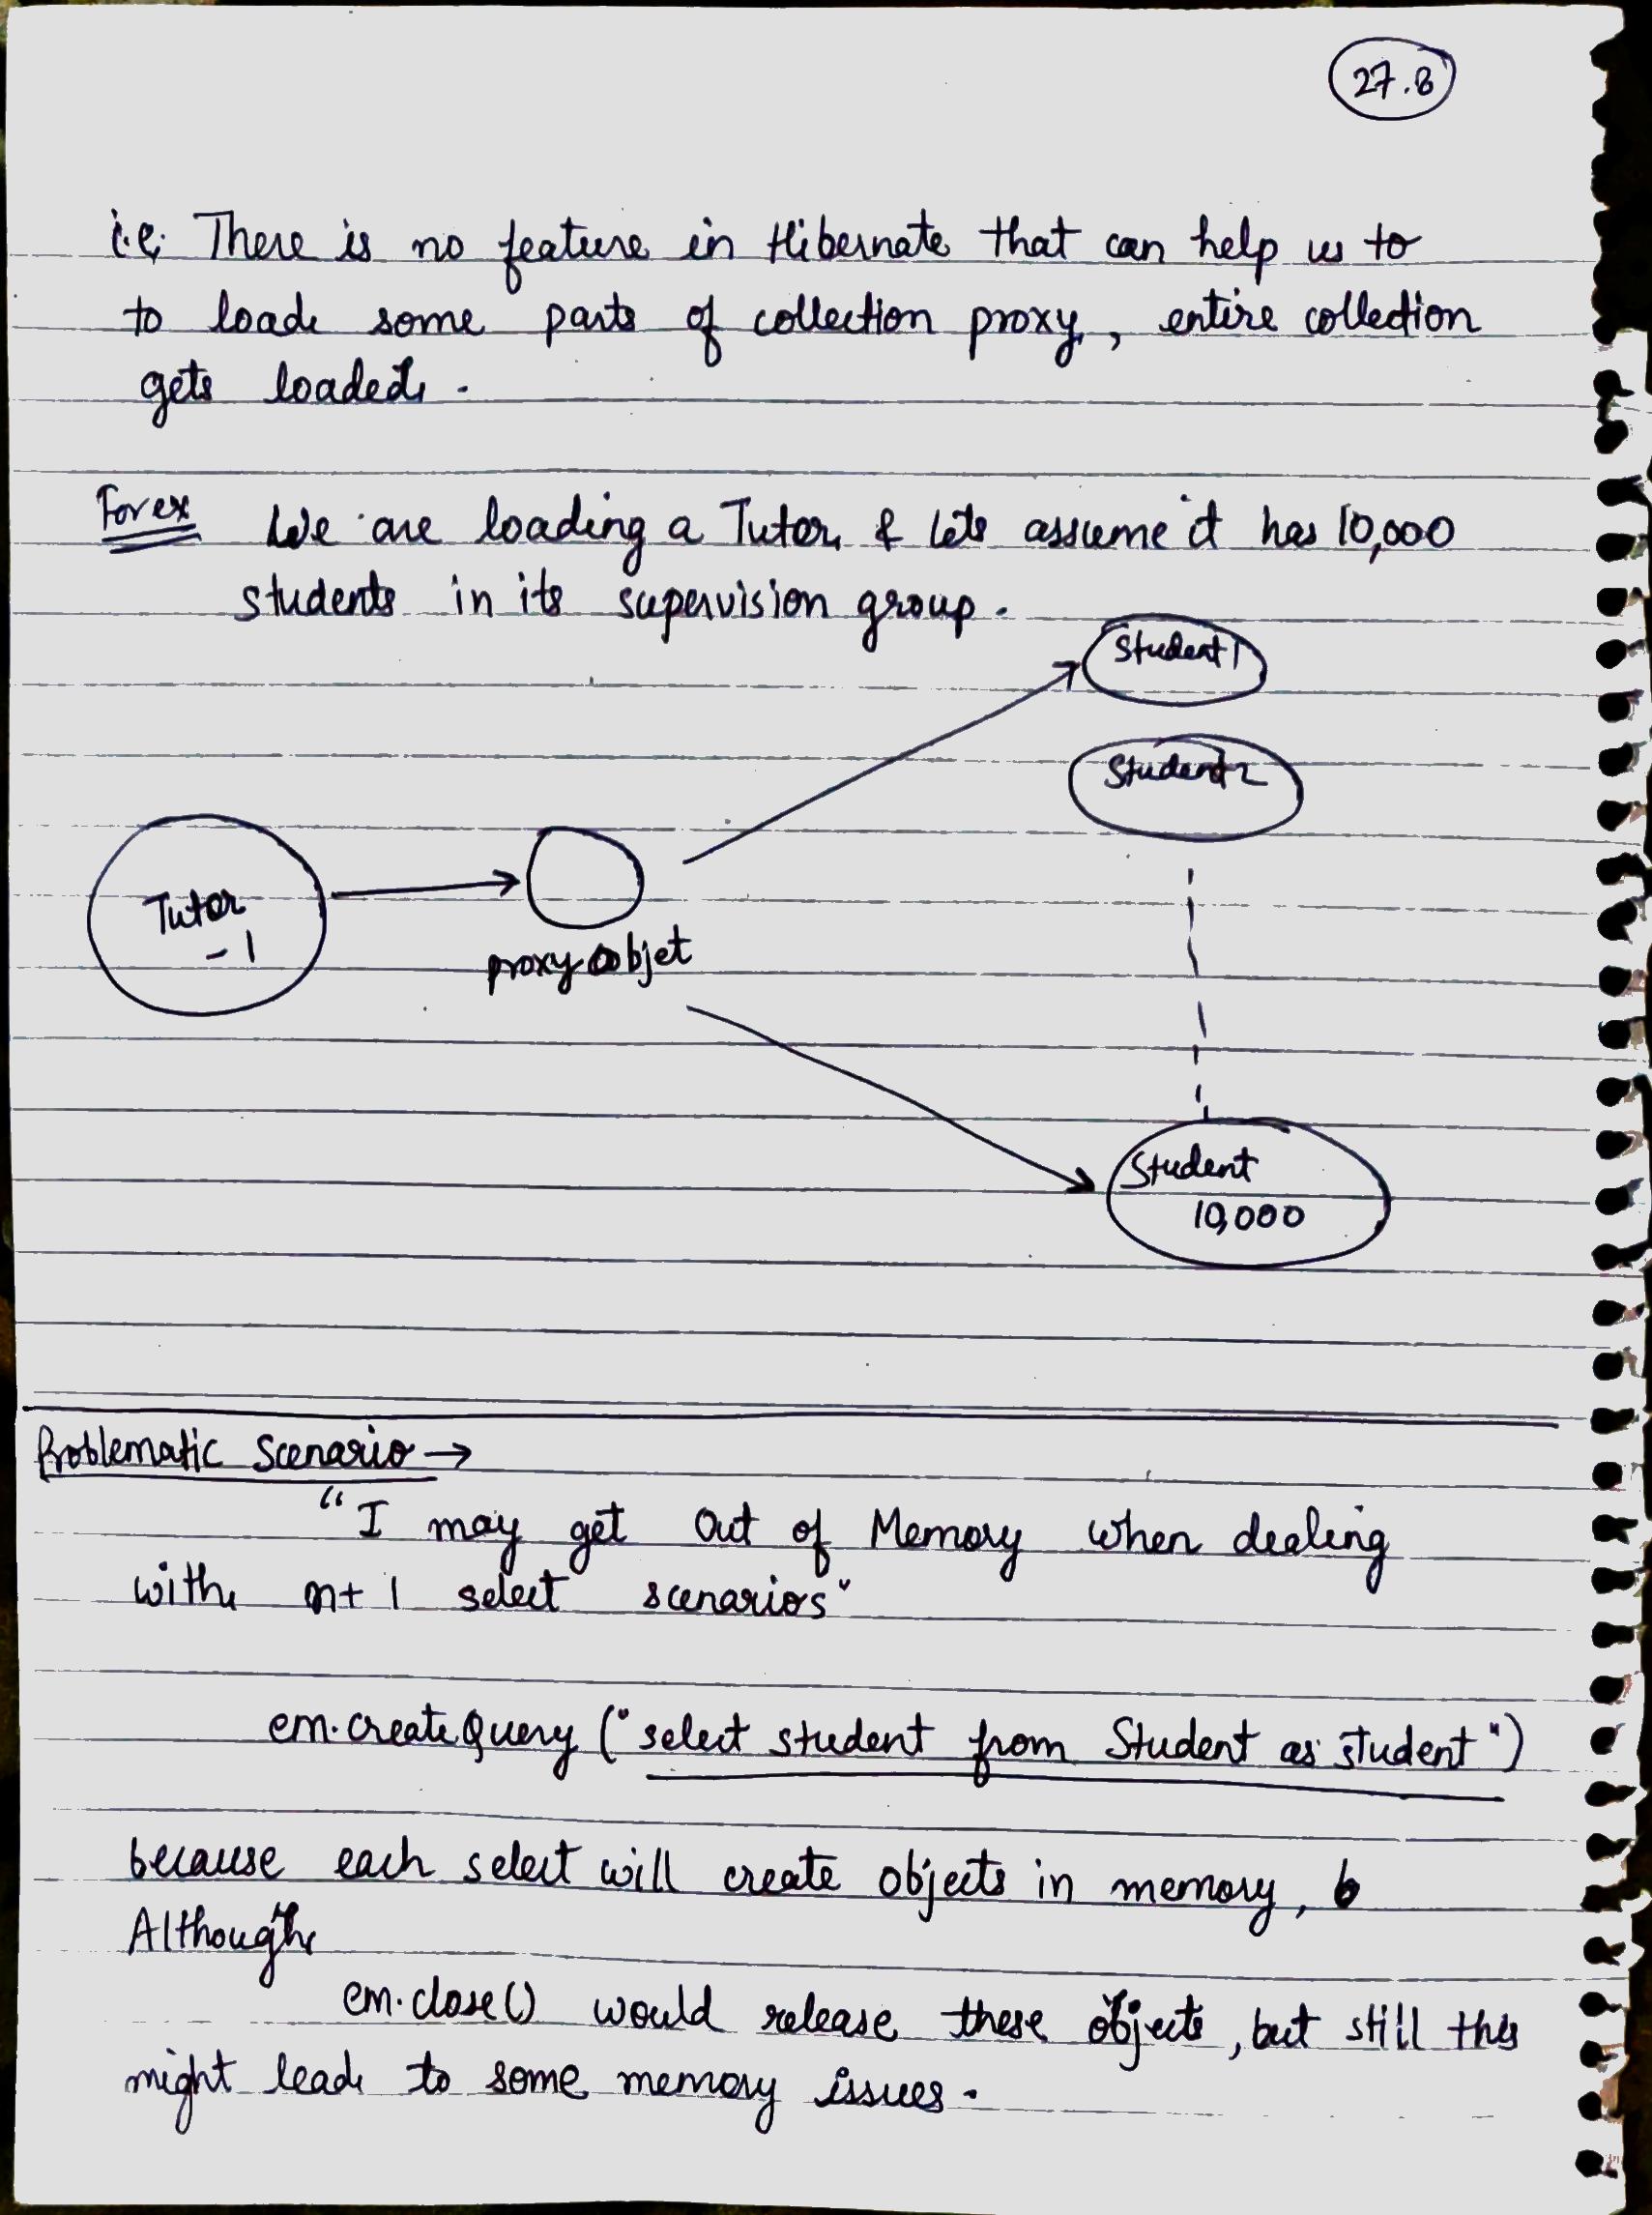 27.8
i.e; There is no feature in Hibernate that can help us to
to load some parts of collection proxy, entire collection
gets loaded.
For ex We are loading a Tutor & lets assume it has 10,000
students in its supervision group.
Student 1
Student 2
Tutor
-1
proxy objet
Student
10,000
Problematic Scenario →
"I may get Out of Memory when dealing
with n+1 select scenarios"
em.createQuery ("select student from Student as student")
because each select will create objects in memory, b
Although
em.close() would release these objects, but still this
might lead to some memory issues.